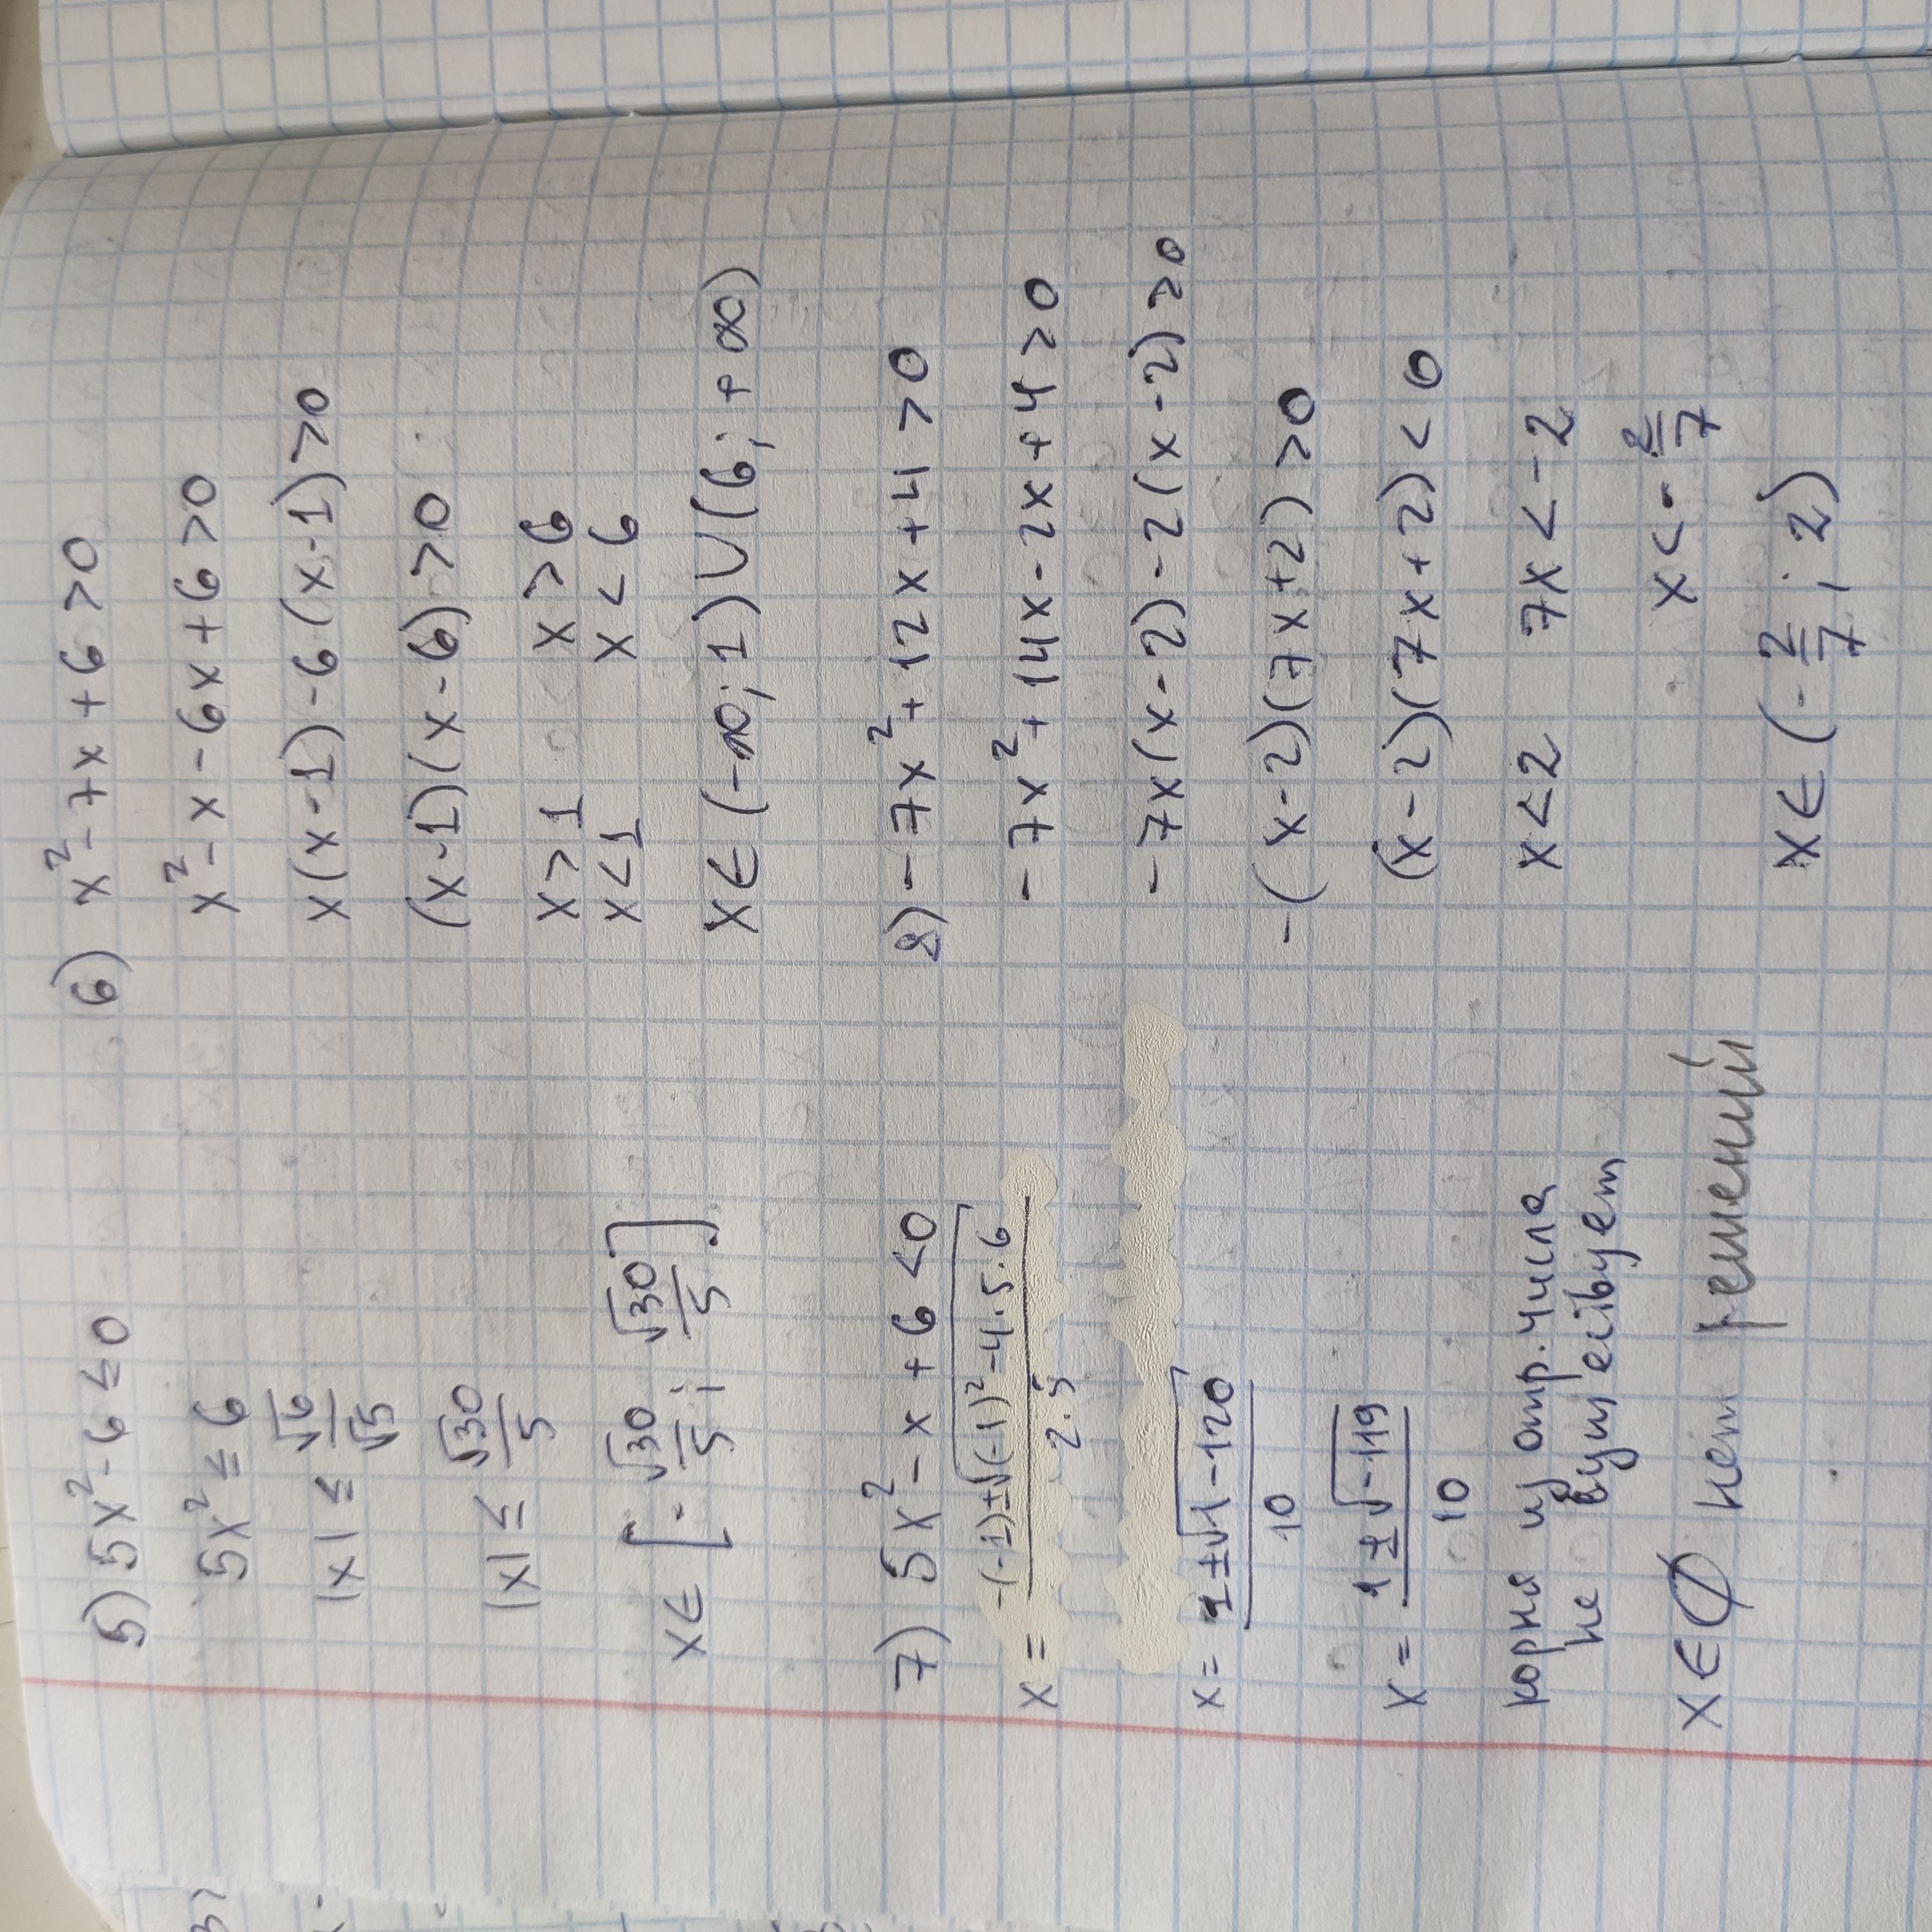 5) 5x² - 6 ≤ 0
5x² ≤ 6
|x| ≤ √6/√5
|x| ≤ √30/5
x ∈ [-√30/5; √30/5].
7) 5x² - x + 6 < 0
x = (-(-1) ± √((-1)² - 4·5·6))/(2·5)
x = (1 ± √(1 - 120))/10
x = (1 ± √(-119))/10
корня из отр. числа
не существует
x ∈ ∅ нет решений
6) x² - 7x + 6 > 0
x² - x - 6x + 6 > 0
x(x - 1) - 6(x - 1) > 0
(x - 1)(x - 6) > 0
x > 1 x > 6
x < 1 x < 6
x ∈ (-∞; 1) ∪ (6; +∞)
8) -7x² + 12x + 4 > 0
-7x² + 14x - 2x + 4 > 0
-7x(x - 2) - 2(x - 2) > 0
-(x - 2)(7x + 2) > 0
(x - 2)(7x + 2) < 0
x < 2 7x < -2
x < -2/7
x ∈ (-2/7; 2)